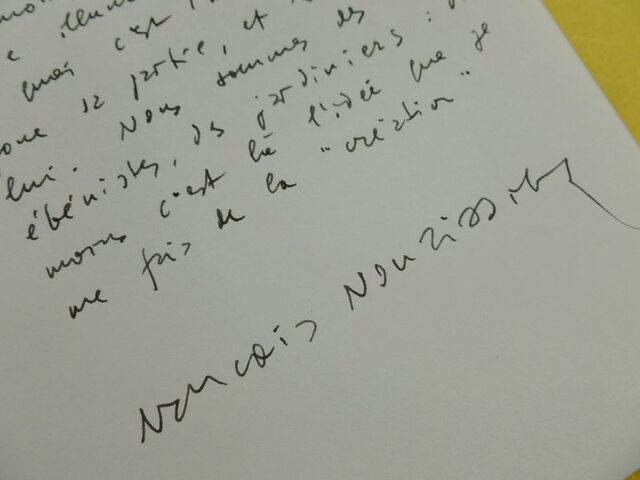 mais c'est
sa partie, et
lui. Nous sommes des
ébénistes, des jardiniers :
moins c'est là l'idée que je
me fais de la "création"
François Nourissier